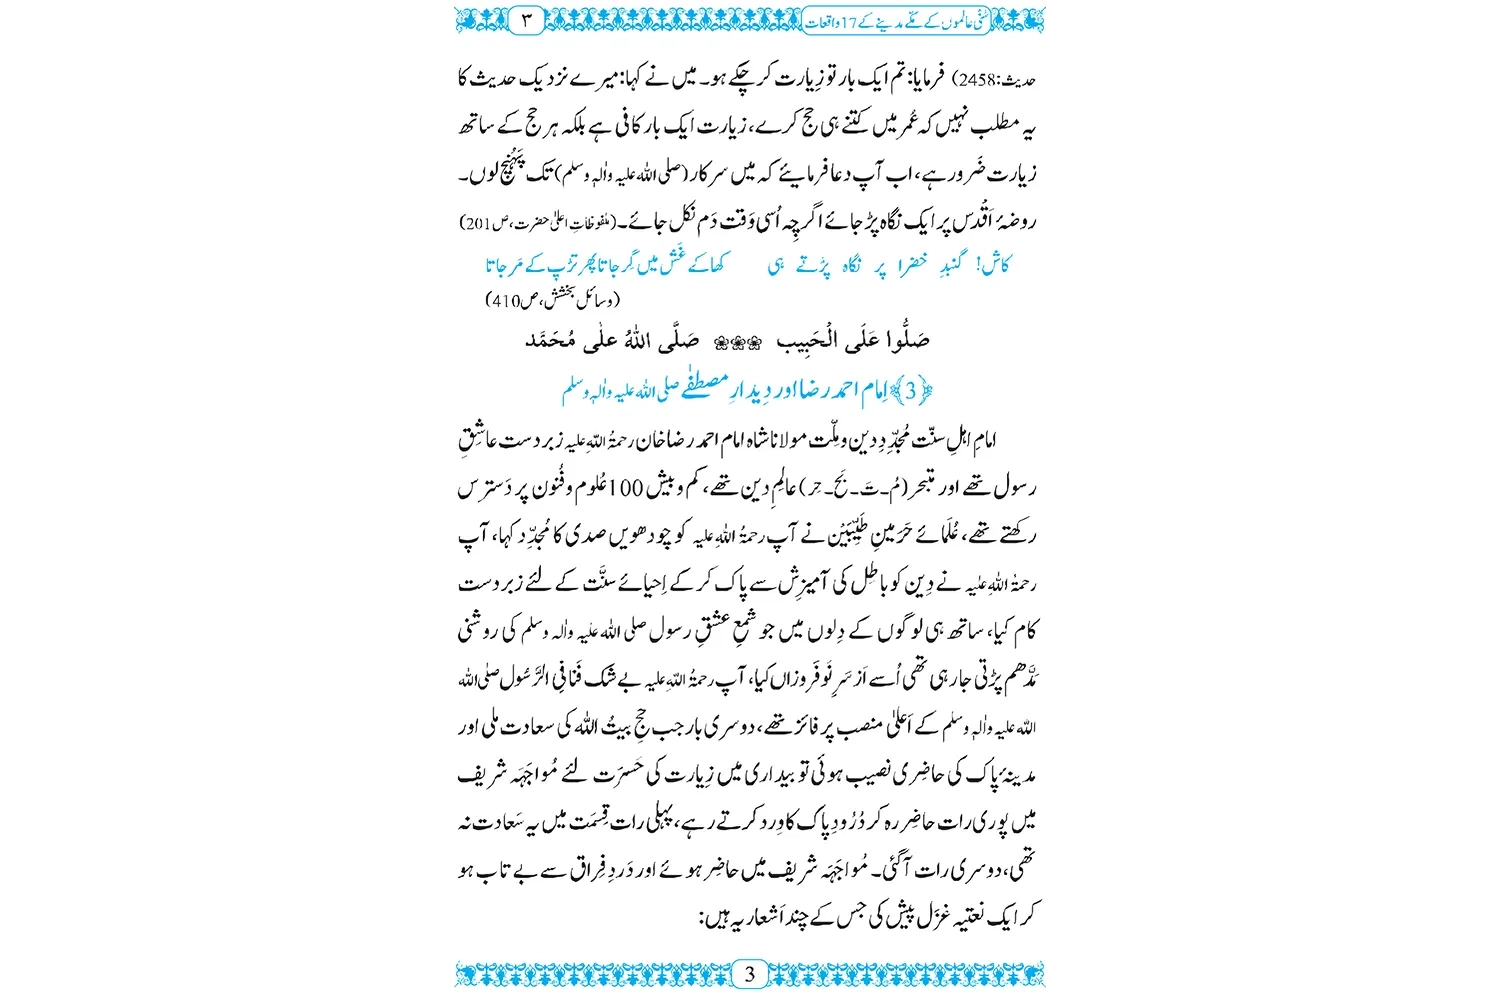 سُنّی عالموں کے مکّے مدینے کے 17 واقعات
۳
حدیث:2458) فرمایا: تم ایک بار تو زِیارت کر چکے ہو۔ میں نے کہا: میرے نزدیک حدیث کا
یہ مطلب نہیں کہ عُمر میں کتنے ہی حج کرے، زیارت ایک بار کافی ہے بلکہ ہر حج کے ساتھ
زیارت ضَرور ہے، اب آپ دعا فرمایئے کہ میں سرکار (صلی اللہ علیہ واٰلہٖ وسلم) تک پَہُنچ لوں۔
روضۂ اَقْدس پر ایک نگاہ پڑ جائے اگرچِہ اُسی وَقت دَم نکل جائے۔ (ملفوظاتِ اعلیٰ حضرت، ص201)
کاش! گنبدِ خضرا پر نگاہ پڑتے ہی کھا کے غَش میں گِر جاتا پھر تڑپ کے مَر جاتا
(وسائلِ بخشش، ص410)
صَلُّوا عَلَی الْحَبِیب ❀❀❀ صَلَّی اللهُ علٰی مُحَمَّد
﴿3﴾ اِمام احمد رضا اور دِیدارِ مصطفٰے صلی اللہ علیہ واٰلہٖ وسلم
امامِ اہلِ سنّت مُجدِّدِ دین و مِلّت مولانا شاہ امام احمد رضا خان رحمۃُ اللہِ علیہ زبردست عاشقِ
رسول تھے اور متبحر (مُ۔تَ۔بَح۔حِر) عالِمِ دین تھے، کم و بیش 100عُلوم و فُنون پر دَسترس
رکھتے تھے، عُلَمائے حَرَمینِ طَیِّبَیْن نے آپ رحمۃُ اللہِ علیہ کو چودھویں صدی کا مُجدِّد کہا، آپ
رحمۃُ اللہِ علیہ نے دِین کو باطِل کی آمیزِش سے پاک کر کے اِحیائے سنَّت کے لئے زبردست
کام کیا، ساتھ ہی لوگوں کے دِلوں میں جو شمعِ عشقِ رسول صلی اللہ علیہ واٰلہٖ وسلم کی روشنی
مَدَّھم پڑتی جا رہی تھی اُسے اَز سَرِ نَو فَروزاں کیا، آپ رحمۃُ اللہِ علیہ بے شک فَنا فِی الرَّسُول صلی اللہ
اللہ علیہ واٰلہٖ وسلم کے اَعلیٰ منصب پر فائز تھے، دوسری بار جب حجِ بیتُ اللہ کی سعادت ملی اور
مدینۂ پاک کی حاضِری نصیب ہوئی تو بیداری میں زِیارت کی حَسرَت لئے مُواجَہَہ شریف
میں پوری رات حاضِر رہ کر دُرُودِ پاک کا وِرد کرتے رہے، پہلی رات قِسمَت میں یہ سَعادت نہ
تھی، دوسری رات آگئی۔ مُواجَہَہ شریف میں حاضِر ہوئے اور دَردِ فِراق سے بے تاب ہو
کر ایک نعتیہ غَزَل پیش کی جس کے چند اَشعار یہ ہیں:
3